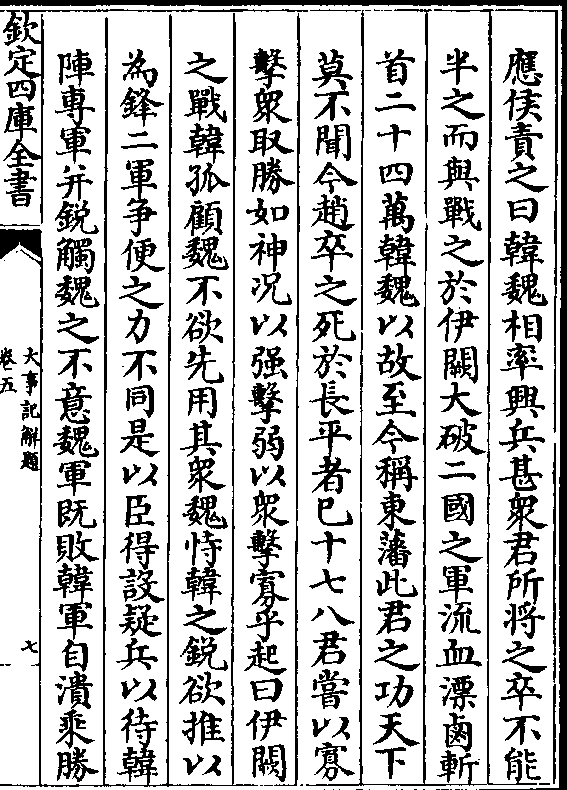 應侯責之曰韓魏相率興兵甚衆君所將之卒不能
半之而與戰之於伊闕大破二國之軍流血漂鹵斬
首二十四萬韓魏以故至今稱東藩此君之功天下
莫不聞今趙卒之死於長平者已十七八君嘗以寡
擊衆取勝如神况以强擊弱以衆擊寡乎起曰伊闕
之戰韓孤顧魏不欲先用其衆魏恃韓之銳欲推以
為鋒二軍争便之力不同是以臣得設疑兵以待韓
陣專軍并銳觸魏之不意魏軍既敗韓軍自潰乘勝
欽定四庫全書
大事記解題
卷五
七